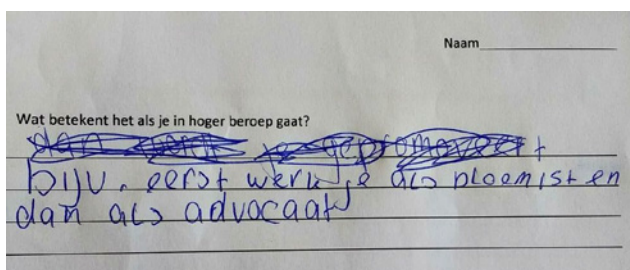 Naam
Wat betekent het als je in hoger beroep gaat?
dan je gepromoveert
bijv. eerst werk je als bloemist en
dan als advocaat